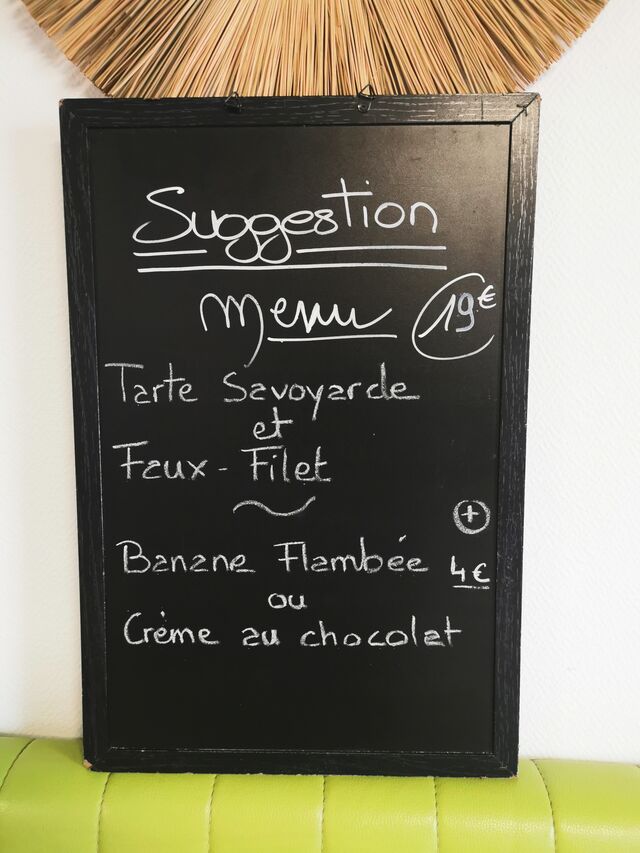 Suggestion
Menu 19€
Tarte Savoyarde
et
Faux-Filet
+
Banane Flambée 4€
ou
Crème au chocolat